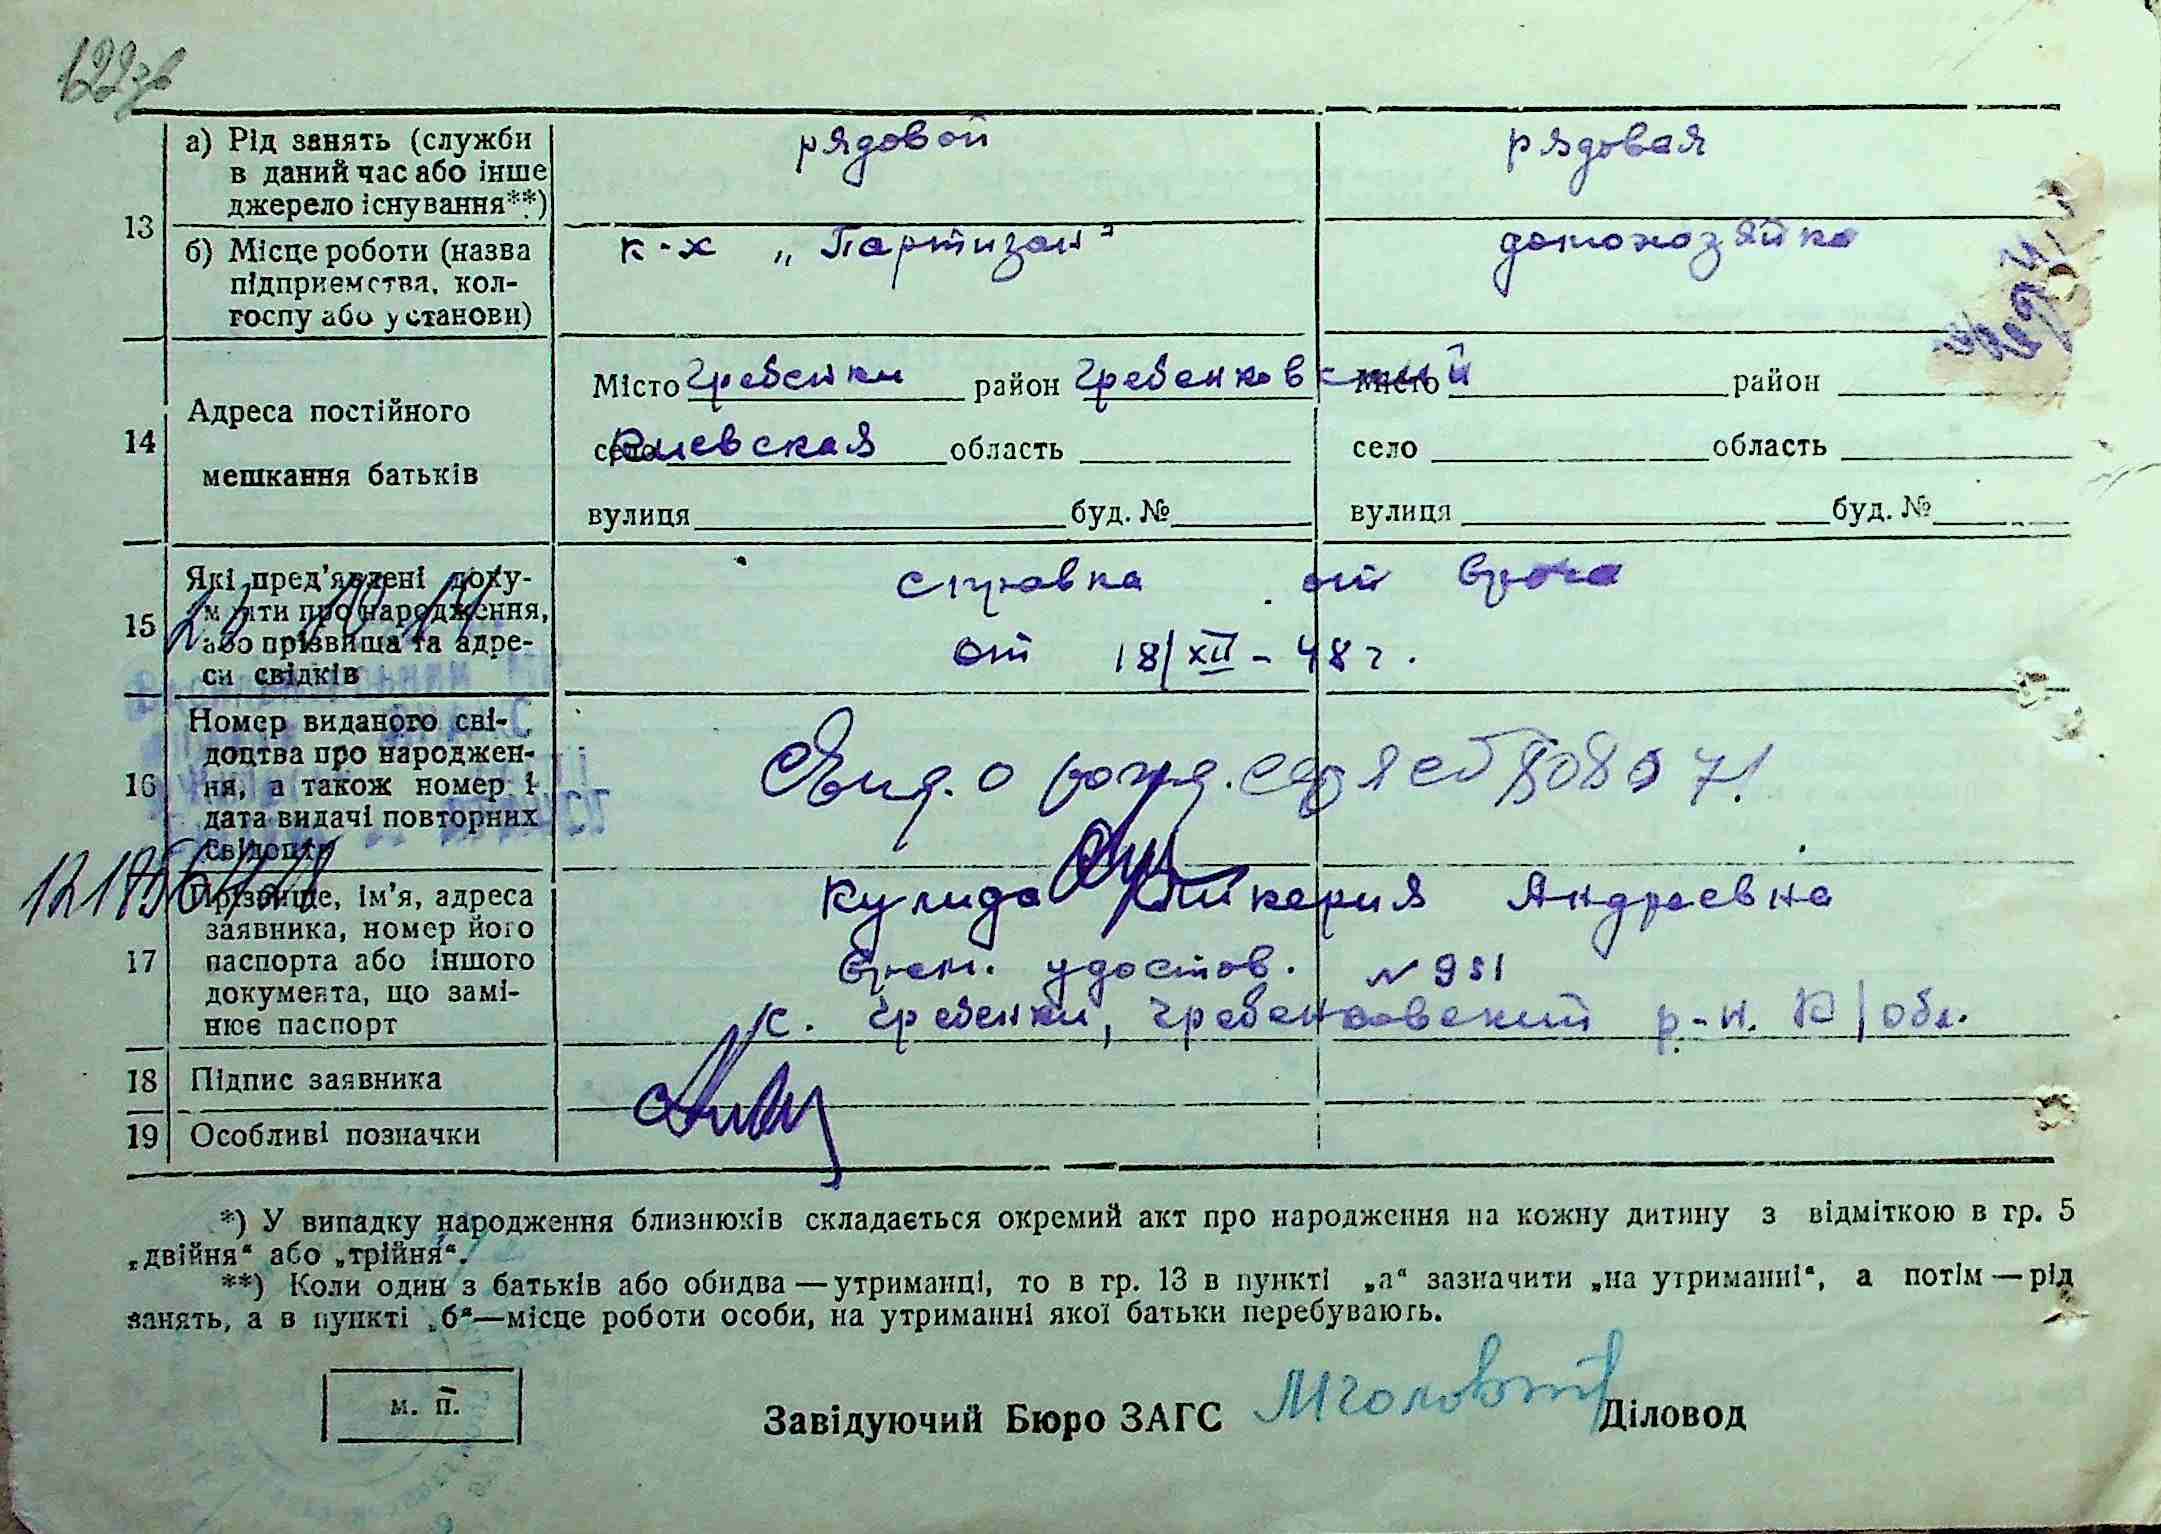 122зв
а) Рід занять (служби рядовой рядовая
в даний час або інше
джерело існування**)
13
б) Місце роботи (назва к-х „Партизан" домохозяйка
підприємства, кол-
госпу або установи)
14 Адреса постійного мешкання батьків
Місто Гребенки район Гребенковский Місто район
село Киевская область село область
вулиця буд. № вулиця буд. №
15 Які пред'явлені доку-
менти про народження, справка от врача
або прізвища та адре- от 18/XII-48 г.
си свідків
16 Номер виданого сві-
доцтва про народжен-
ня, а також номер і Свид. о рожд.
дата видачі повторних
свідоцтв
17 Прізвище, ім'я, адреса Кулида Андреевна
заявника, номер його
паспорта або іншого врем. удостов. № 951
документа, що замі- с. Гребенки, Гребенковский р-н. К/обл.
нює паспорт
18 Підпис заявника
19 Особливі позначки
*) У випадку народження близнюків складається окремий акт про народження на кожну дитину з відміткою в гр. 5
„двійня" або „трійня".
**) Коли один з батьків або обидва — утриманці, то в гр. 13 в пункті „а" зазначити „на утриманні", а потім — рід
занять, а в пункті „б"—місце роботи особи, на утриманні якої батьки перебувають.
м. п.
Завідуючий Бюро ЗАГС Діловод